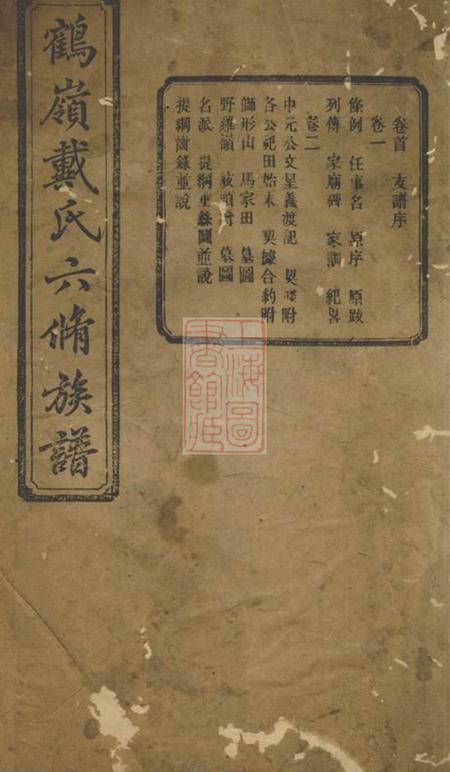 鶴嶺戴氏六脩族譜
卷首 支譜序
卷一
條例 任事名 原序 原跋
列傳 家廟碑 家訓 紀畧
卷二
中元公文星義渡記 契據附
各公祀田始末 契據合約附
獅形山 馬家田 墓圖
野雞嶺 墓圖
名派 提綱垂絲圖並說
提綱齒錄並說
上海圖書館藏